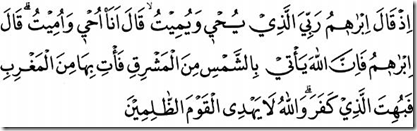 اِذْ قَالَ اِبْرٰهٖمُ رَبِّيَ الَّذِيْ يُحْيٖ وَيُمِيْتُۙ قَالَ اَنَا۠ اُحْيٖ وَاُمِيْتُۗ قَالَ
اِبْرٰهٖمُ فَاِنَّ اللّٰهَ يَأْتِيْ بِالشَّمْسِ مِنَ الْمَشْرِقِ فَأْتِ بِهَا مِنَ الْمَغْرِبِ
فَبُهِتَ الَّذِيْ كَفَرَۗ وَاللّٰهُ لَا يَهْدِى الْقَوْمَ الظّٰلِمِيْنَ